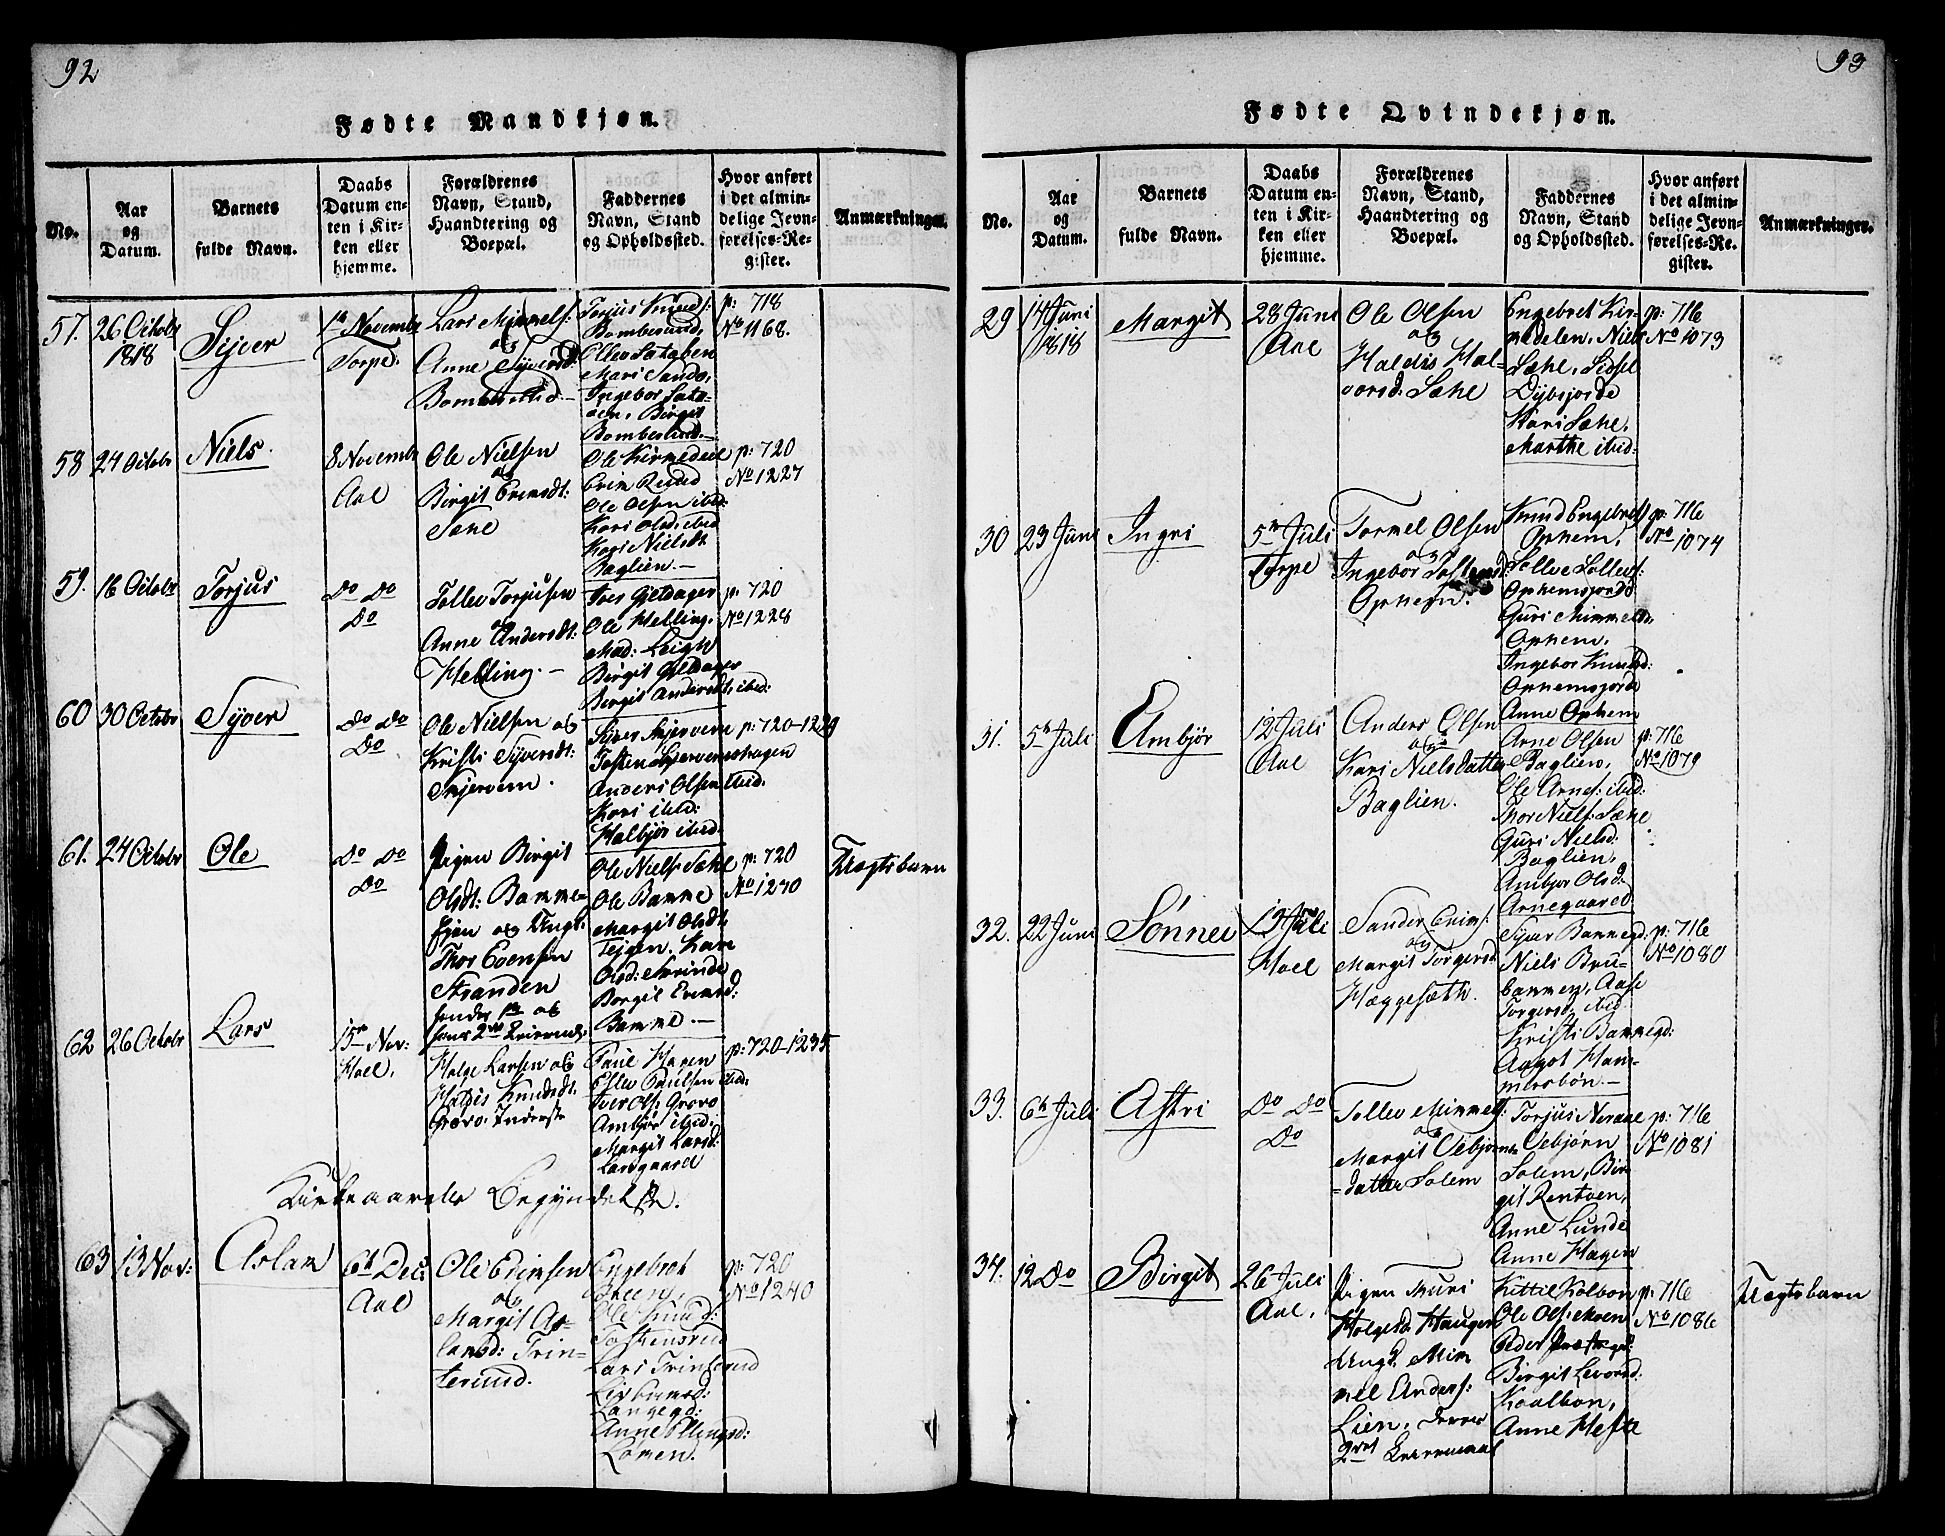 92
Fødte Mandkjøn.
No.
Aar
og
Datum.
Barnets
fulde Navn.
Daabs
Datum en-
ten i Kir-
ken eller
hjemme.
Forældrenes
Navn, Stand,
Haandtering og
Boepæl.
Faddernes
Navn, Stand
og Opholdssted.
Hvor anført
i det almin-
delige Jevn-
førelses-Re-
gister.
Anmærkninger.
57.
26 Octobr
1818
Syver
1te Novembr
Torpe.
Lars Mimmels:
og
Anne Syversd:
Bomberud.
Torjus Knuds:
Bomberud,
Mari Sando,
Birgit
Bomberud.
p: 718
No 1168.
58
24 Octobr
Niels.
8 Novembr
Aal
Ole Nielsen
og
Birgit
Sæhe
Ole Kirmedeel
Ole Olsen ibid:
Kari Olsd: ibid
Kari Nielsdt
Baglien.
p: 720
No 1227
59.
16 Octobr
Torjus
Do Do
Do
Tollev Torjusen
og
Anne Andersdt:
Helling.
Iver Gjeldager
Ole Helling,
Mad: Leigh
Birgit Gjeldager
Birgit Andersdt: ibid:
p: 720
No 1228
60
30 Octobr
Syver
Do Do
Do
Ole Nielsen og
Kristi Syversdt:
Skjervem.
Anders Olsen ibid.
Kari ibid:
Halbjør ibid.
p: 720-1229
61.
24 Octobr
Ole
Do Do
Do
Pigen Birgit
Olsdt: Bamme-
og Ungk:
Thor Evensen
Stranden
Ole Niels: Sæhe
Ole Bamme
Margit Olsdt
Tejgen. Kari
Olsd:
Bamme.
p: 720
No 1230
Uægtebarn
62
26 Octobr
Lars
15de Nov:
Hoel.
Holge Larsen og
Haldis Knudsdt:
Grøvo. Inderste
Poul Hagen
Eslev Poulsen ibid:
Iver Ols: Grøvo
Ambjør ibid:
Margit Larsd:
Larsgaard
p: 720-1235
Kirkeaarets Begyndelse.
63
13 Nov:
Aslam
6te Dec:
Aal
Ole
og
Margit As-
lansd: Trin-
terud.
Engebret
Ole Knud:
Lars Trinterud
Langegd:
Anne Ellingsd:
Lømen.
p: 720
No 1240
93
Fødte Qvindekjøn.
No.
Aar
og
Datum.
Barnets
fulde Navn.
Daabs
Datum en-
ten i Kir-
ken eller
hjemme.
Forældrenes
Navn, Stand,
Haandtering og
Boepæl.
Faddernes
Navn, Stand
og Opholdssted.
Hvor anført
i det almin-
delige Jevn-
førelses-Re-
gister.
Anmærkninger.
29
14 Juni
1818
Margit
28 Juni
Aal
Ole Olsen
og
Haldis Hal-
vorsd: Sæhe
Engebret Kir-
medelen, Niels
Sæhe, Sidsel
Dybsjorde
Kari Sæhe,
Marthe ibid:
p: 716
No 1073
30
23 Juni
Ingri
5te Juli
Torpe
Tormel Olsen
og
Ingebor
Ophem.
Knud Engebrets
Ophem,
Ophemsjorde
Guri Mimmelsd:
Ophem,
Ingebor Knudsd:
Ophemsjorde
Anne Ophem
p: 716
No 1074
31.
5te Juli
Ambjør
12 Juli
Aal
Anders Olsen
og
Kari Nielsdatter
Baglien.
Arne Olsen
Baglien,
Ole Arnes: ibid:
Thor Niels: Sæhe
Guri Nielsd:
Baglien,
Ambjør Olsd:
Arnegaard
p: 716
No 1079
32.
22 Juni
Sønnei
Juli
Hoel
Sander
og
Margit Torgersd
Hæggesæth.
Syver Bammegd:
Niels Bru-
bammen, Aase
Torgersd: ibid
Kristi Bammegd:
Aagot Ham-
mersbøn.
p: 716
No 1080
33.
6te Juli
Astri
Do Do
Do
Tollev Mimmels:
og
Margit Vebjørns-
datter Solem
Torjus
Vebjørn
Solem, Bir-
git Rentoen,
Anne Lunde
Anne Hagen
p: 716
No 1081
34.
12 Do
Birgit
26 Juli
Aal.
Pigen Turi
Holgesd Haugen
Ungk. Mim-
mel Anders:
Lien, deres
2det Leiermaal
Kittil Kolbon
Ole Ols: Moen
Peder
Birgit Levorsd:
Koalbon,
Anne Hefte
p: 716
No 1086
Uægtebarn